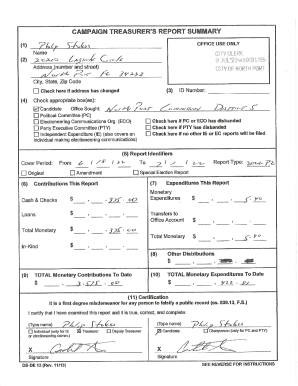 CAMPAIGN TREASURER'S REPORT SUMMARY
(1) Philip Stokes
Name
(2)
Address (number and street)
North Port FL
City, State, Zip Code
Check here if address has changed
OFFICE USE ONLY
CITY CLERK
CITY OF NORTH PORT
(3) ID Number:
(4) Check appropriate box(es):
Candidate Office Sought: North Port Commission District 5
Political Committee (PC)
Electioneering Communications Org. (ECO)
Party Executive Committee (PTY)
Independent Expenditure (IE) (also covers an individual making electioneering communications)
Check here if PC or ECO has disbanded
Check here if PTY has disbanded
Check here if no other IE or EC reports will be filed
(5) Report Identifiers
Cover Period: From 6 / / 22 To / / 22 Report Type: 2022 P2
Original Amendment Special Election Report
(6) Contributions This Report
Cash & Checks $ 835.00
Loans $
Total Monetary $ 835.00
In-Kind $
(7) Expenditures This Report
Monetary Expenditures $
Transfers to Office Account $
Total Monetary $
(8) Other Distributions
$
(9) TOTAL Monetary Contributions To Date
$ 3,575.00
(10) TOTAL Monetary Expenditures To Date
$
(11) Certification
It is a first degree misdemeanor for any person to falsify a public record (ss. 839.13, F.S.)
I certify that I have examined this report and it is true, correct, and complete:
(Type name) Philip Stokes
Individual (only for IE or electioneering comm.) Treasurer Deputy Treasurer
X
Signature
(Type name) Philip Stokes
Candidate Chairperson (only for PC and PTY)
X
Signature
DS-DE 12 (Rev. 11/13)
SEE REVERSE FOR INSTRUCTIONS